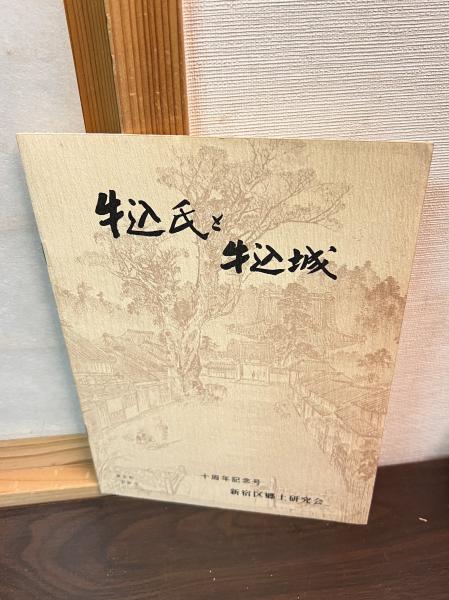 牛込氏と
牛込城
十周年記念号
新宿区郷土研究会